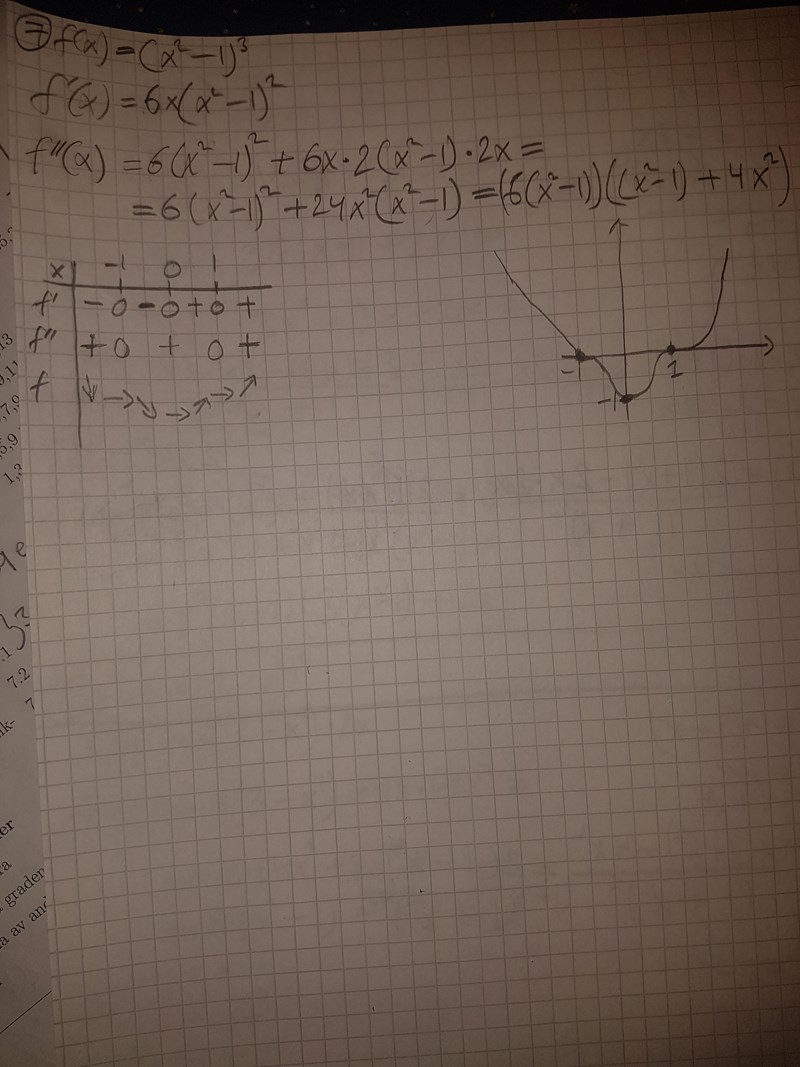 ⑦ f(x) = (x²-1)³
f'(x) = 6x(x²-1)²
f''(x) = 6(x²-1)² + 6x·2(x²-1)·2x =
= 6(x²-1)² + 24x²(x²-1) = (6(x²-1))((x²-1) + 4x²)
x -1 0 1
f' - 0 - 0 + 0 +
f'' + 0 + 0 +
f ↓ → ↘ → ↗ → ↗
-1 1
-1
7.2
7
grader